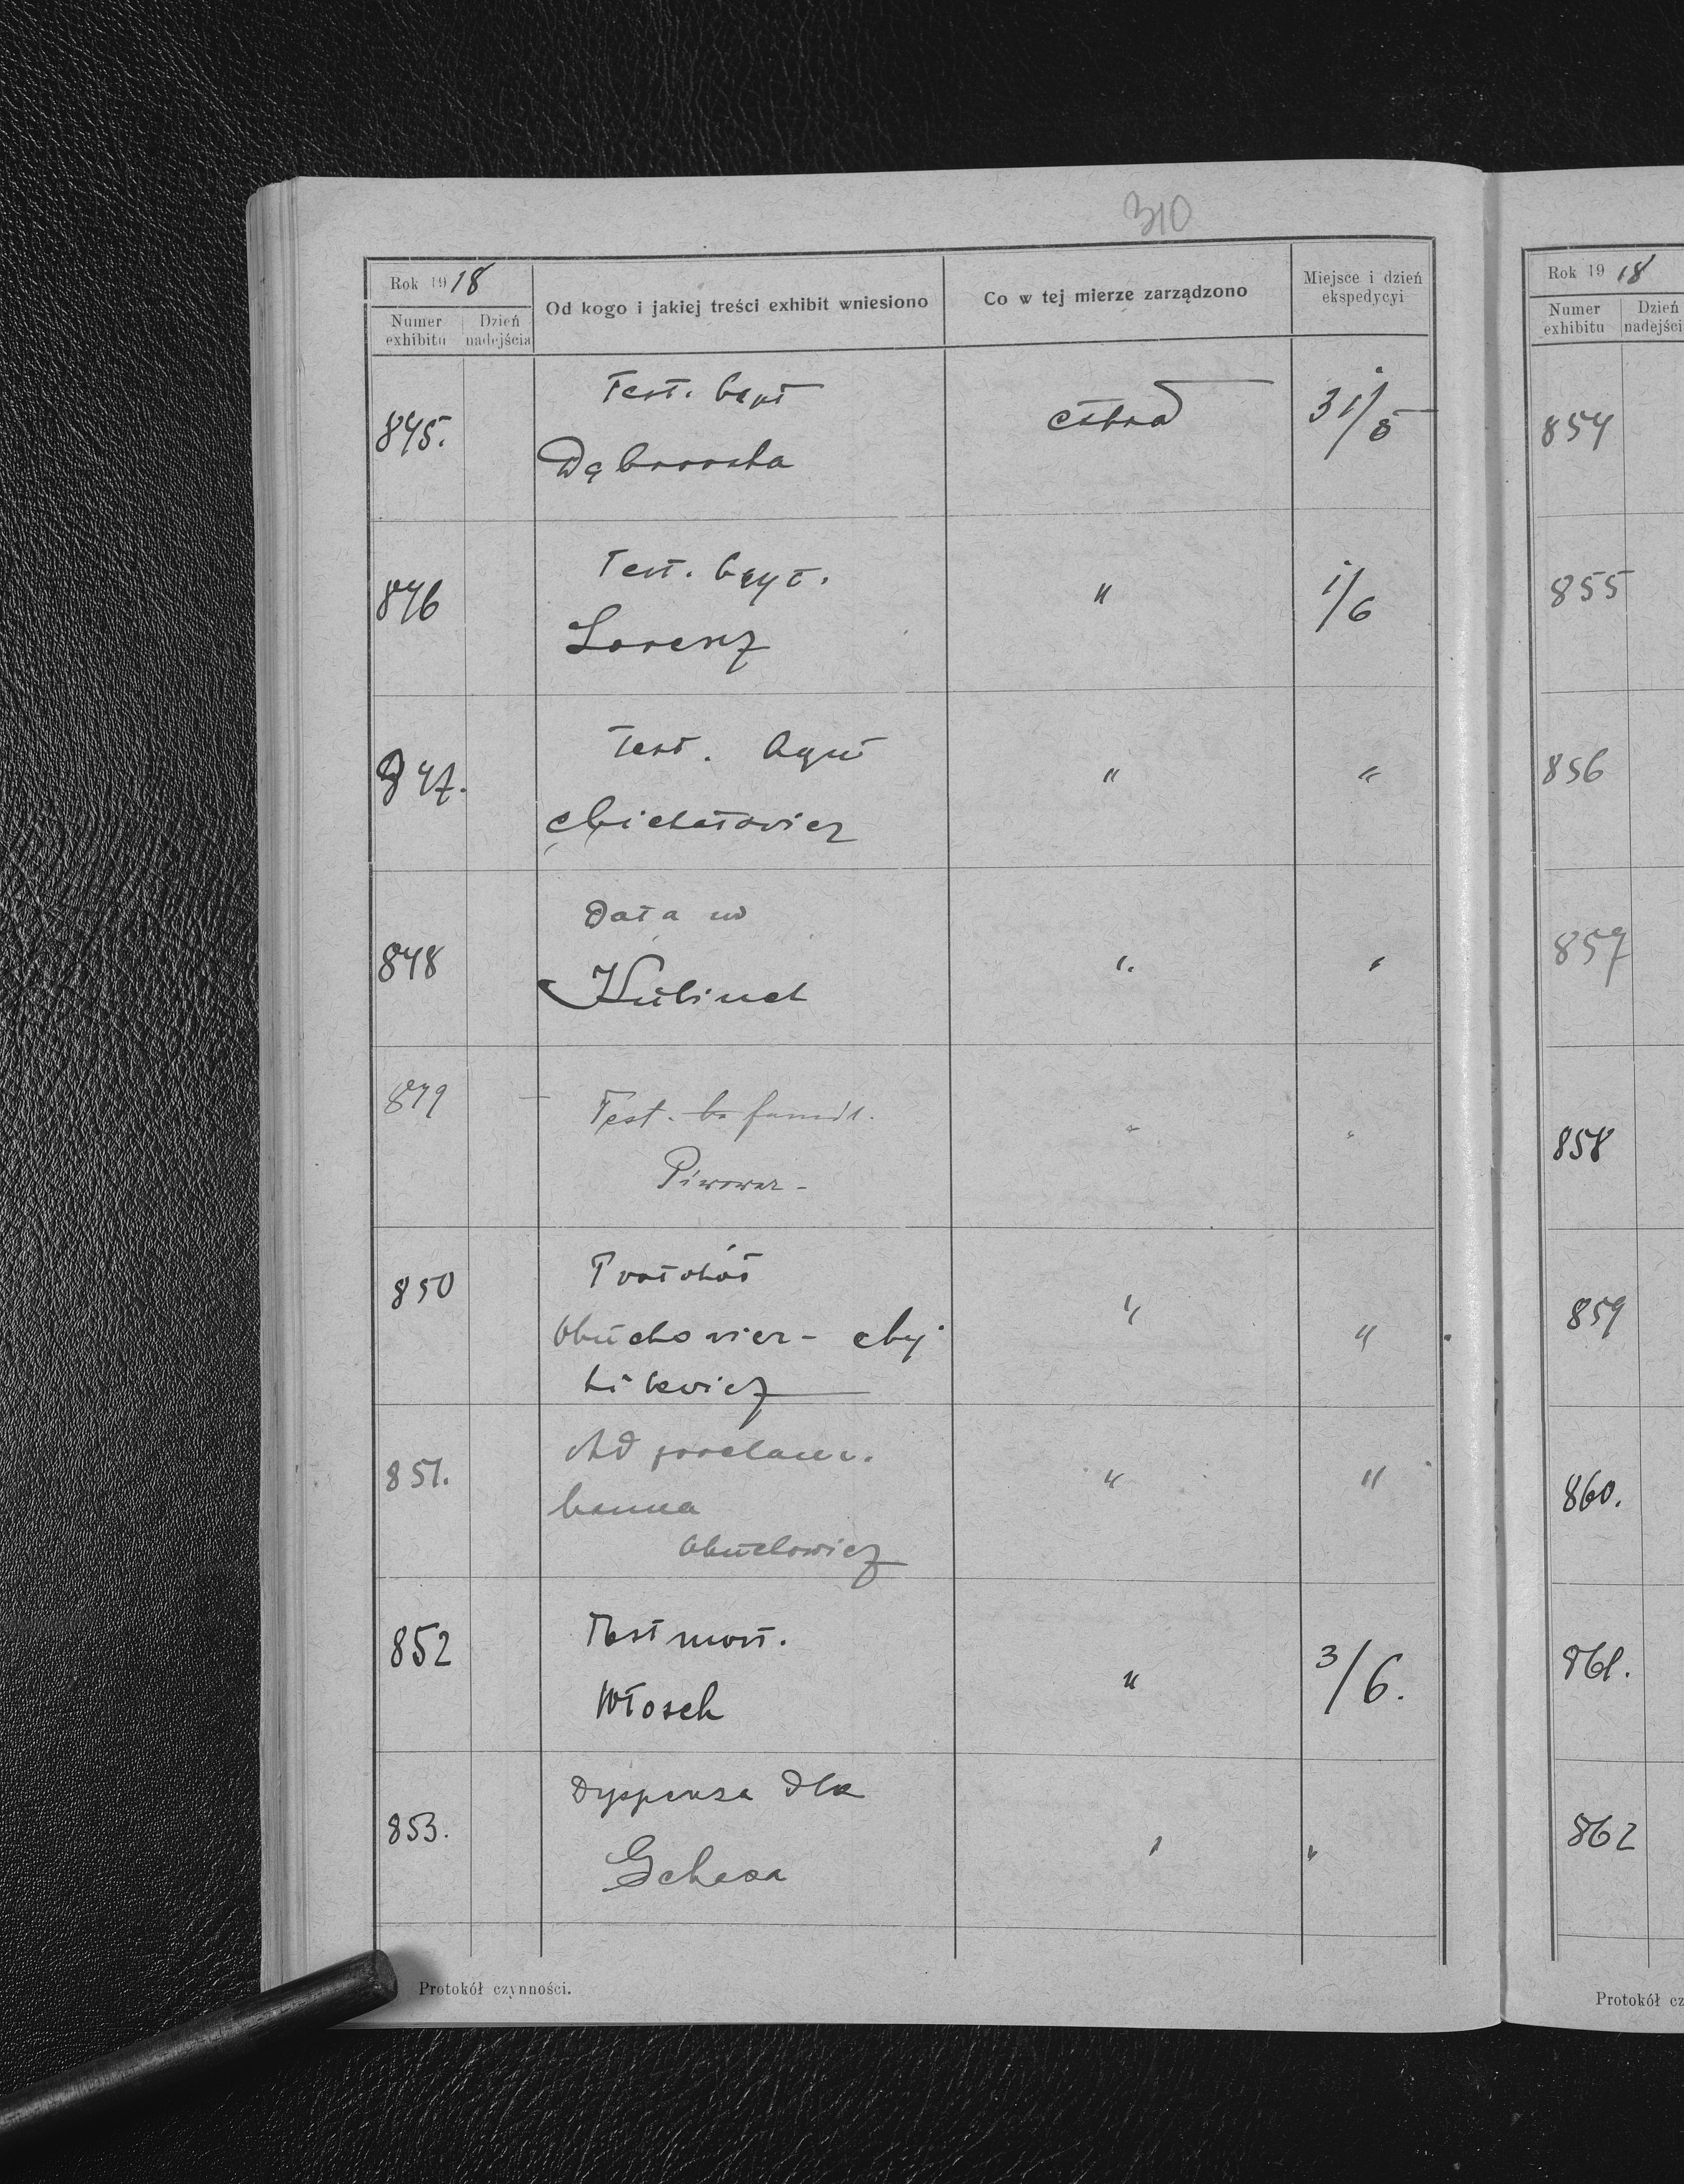 310
Rok 1918
Numer exhibitu
Dzień nadejścia
Od kogo i jakiej treści exhibit wniesiono
Co w tej mierze zarządzono
Miejsce i dzień ekspedycyi
845.
Test. bapt
Dąbrowska
31/5
846
Test. bapt.
Lorenz
"
1/6
847.
Test. bapt
Michałowicz
"
"
848
Data
Kubinek
"
"
849
Test. famil.
Piwowar -
"
"
850
Protokół
Obuchowicz -
"
"
851.
Ad proclam.
banna
Obuchowicz
"
"
852
Test mort.
Włosek
"
3/6.
853.
Dyspensa dla
"
"
Protokół czynności.
Rok 1918
Numer exhibitu
Dzień
854
855
856
857
858
859
860.
861.
862
Protokół cz